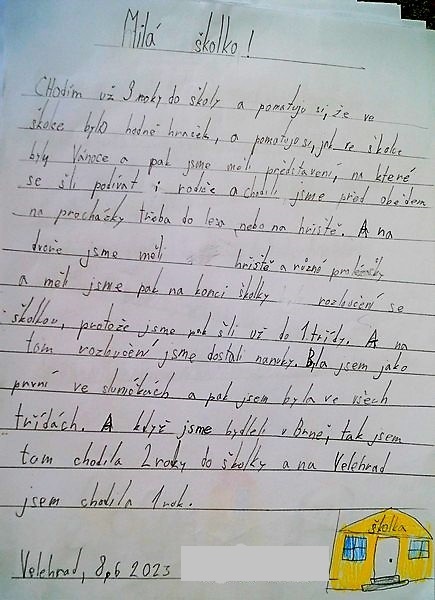 Milá školko!
Chodím už 3 roky do školy a pomatuju si, že ve
školce bylo hodně hraček, a pomatuju si, jak ve školce
byly Vánoce a pak jsme měli představení, na které
se šli podívat i rodiče a chodili jsme před obědem
na procházky třeba do lesa nebo na hřiště. A na
dvoře jsme měli hřiště a různé prolézačky
a měli jsme pak na konci školky rozloučení se
školkou, protože jsme pak šli už do 1 třídy. A na
tom rozloučení jsme dostali nanuky. Byla jsem jako
první ve sluníčkách a pak jsem byla ve všech
třídách. A když jsme bydleli v Brně, tak jsem
tam chodila 2 roky do školky a na Velehrad
jsem chodila 1 rok.
školka
Velehrad, 8.6 2023